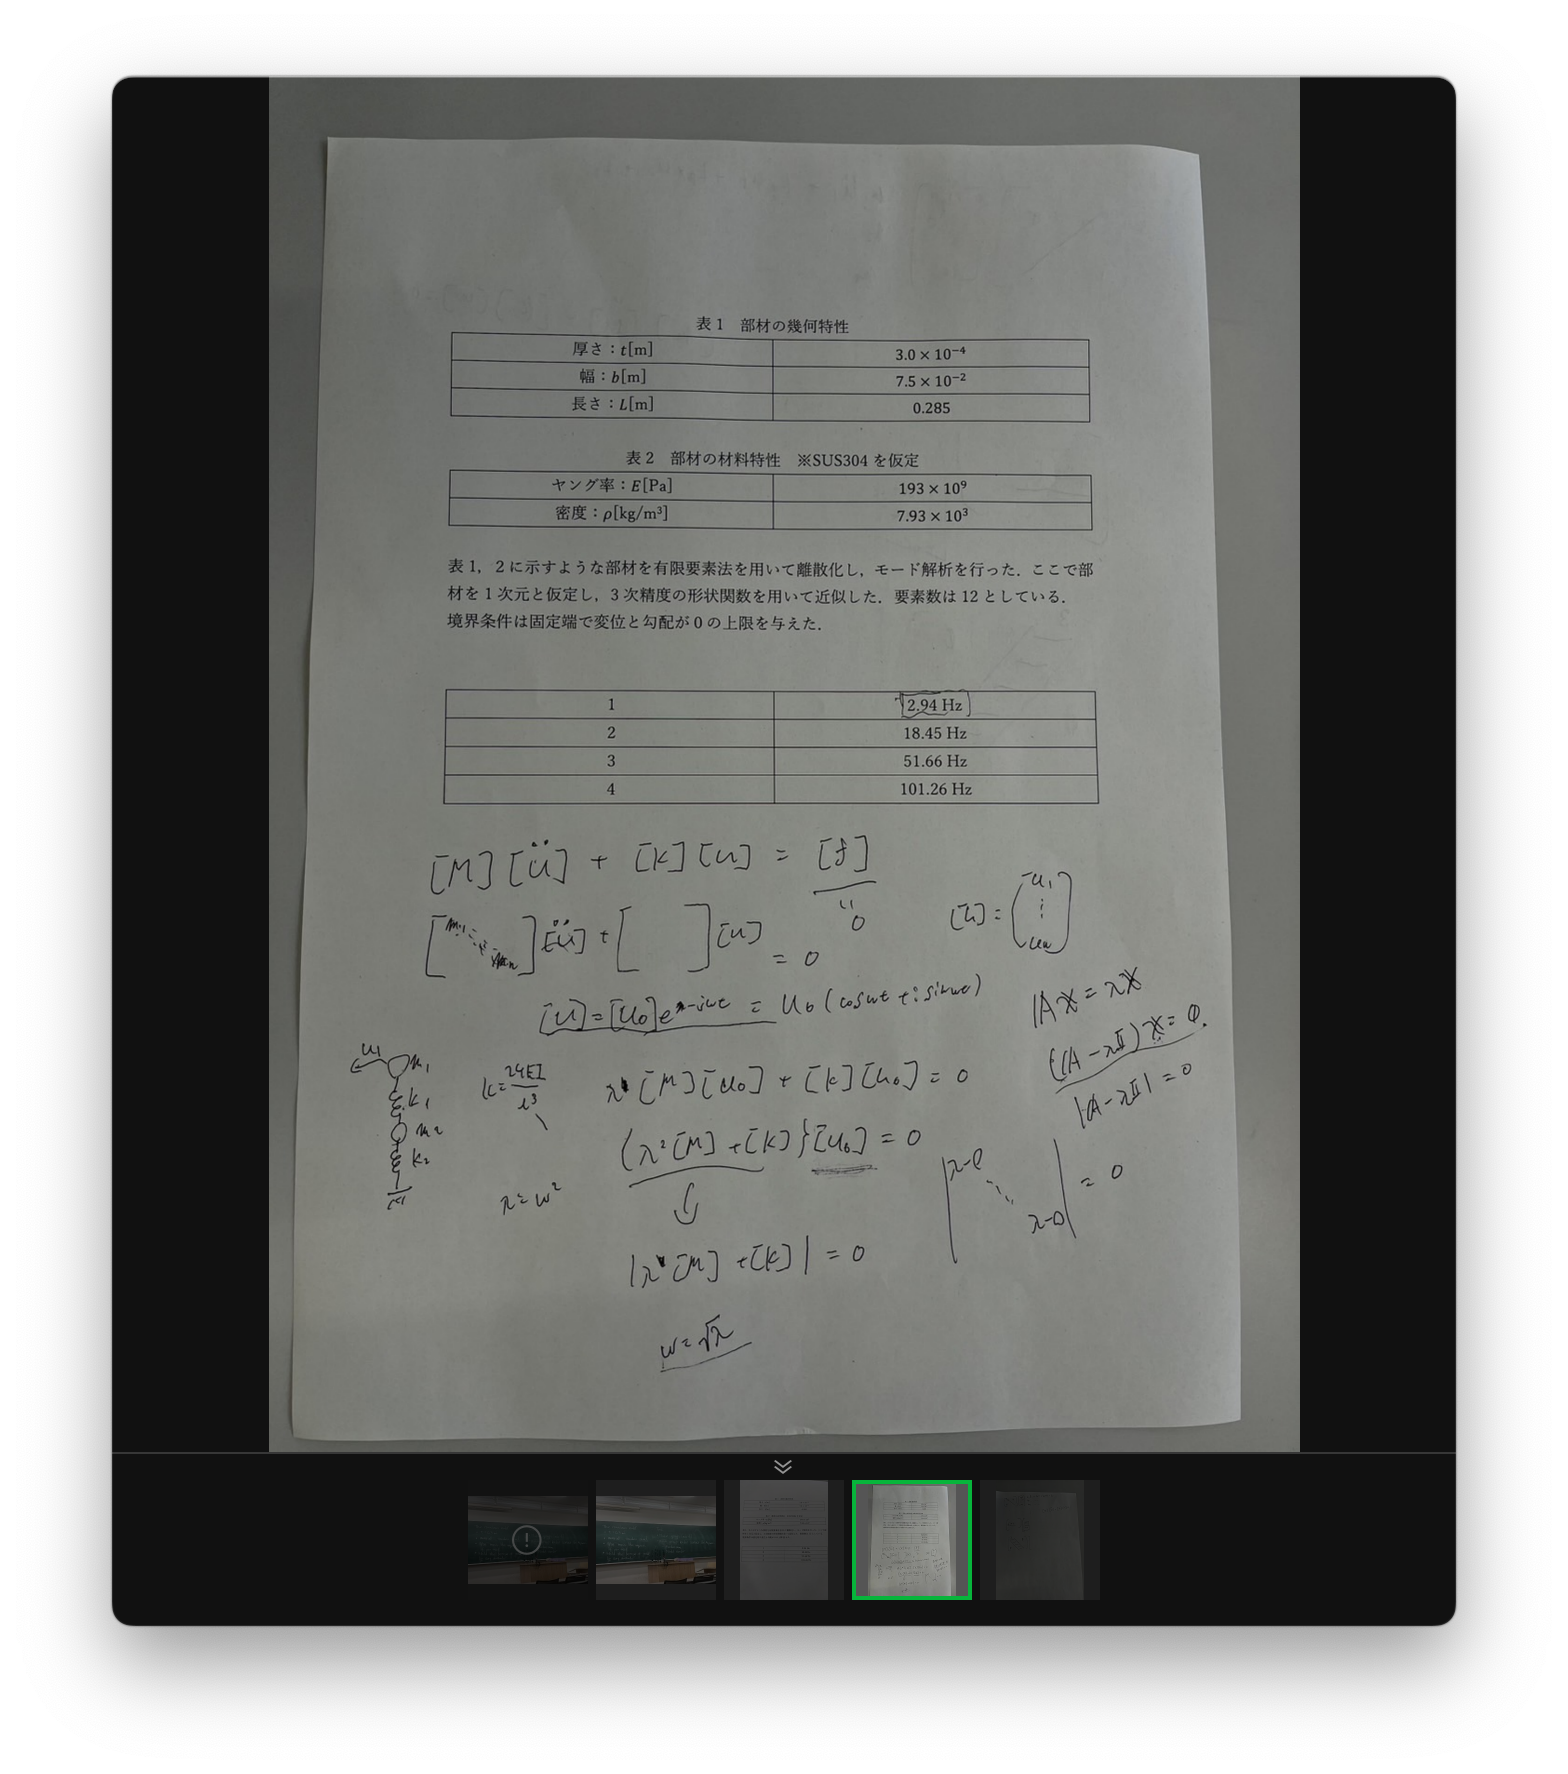 表1 部材の幾何特性
厚さ：t[m] 3.0 × 10⁻⁴
幅：b[m] 7.5 × 10⁻²
長さ：L[m] 0.285
表2 部材の材料特性 ※SUS304 を仮定
ヤング率：E[Pa] 193 × 10⁹
密度：ρ[kg/m³] 7.93 × 10³
表1，2に示すような部材を有限要素法を用いて離散化し，モード解析を行った．ここで部
材を1次元と仮定し，3次精度の形状関数を用いて近似した．要素数は12としている．
境界条件は固定端で変位と勾配が0の上限を与えた．
1 2.94 Hz
2 18.45 Hz
3 51.66 Hz
4 101.26 Hz
[M][ü] + [K][u] = [f]
0
[ü] + [ ][u] = 0
[u] = (u₁ ⋮ uₙ)
[u] = [u₀]e = u₀(cosωt + i sinωt)
Ax = λx
(A − λI)x = 0.
|A − λI| = 0
u₁ m₁
k₁
m₂
k₂
k = 24EI/l³
λ [M][u₀] + [K][u₀] = 0
(λ²[M] + [K]}[u₀] = 0
λ = ω²
= 0
|λ [M] + [K]| = 0
ω = √λ